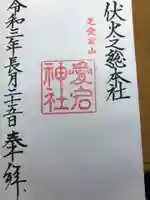 伏火之総本社
芝愛宕山
愛宕
神社
令和三年長月二十五日 奉拝